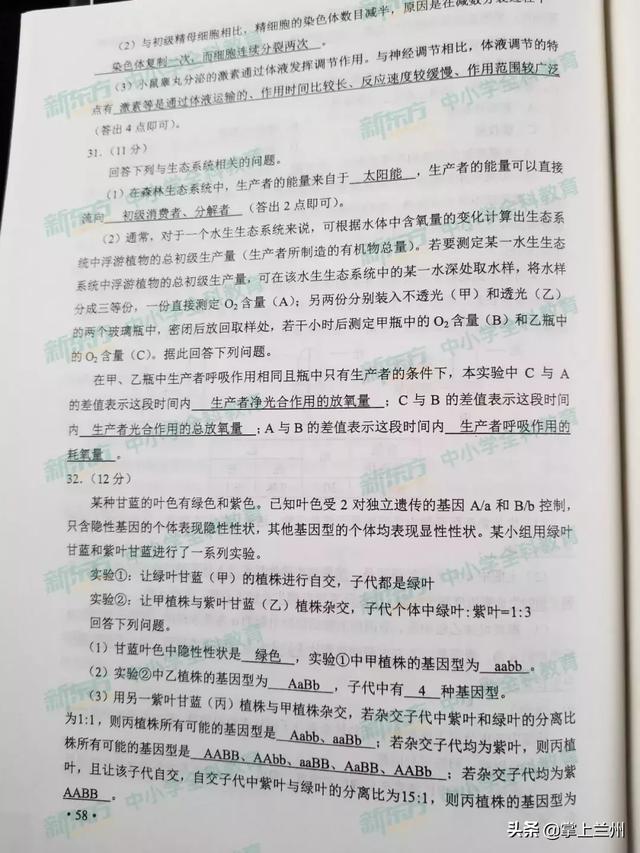 （2）与初级精母细胞相比，精细胞的染色体数目减半，原因是在减数分裂过程中
染色体复制一次，而细胞连续分裂两次。
（3）小鼠睾丸分泌的激素通过体液发挥调节作用。与神经调节相比，体液调节的特
点有 激素等是通过体液运输的、作用时间比较长、反应速度较缓慢、作用范围较广泛
（答出 4 点即可）。
31.（11 分）
回答下列与生态系统相关的问题。
（1）在森林生态系统中，生产者的能量来自于 太阳能 ，生产者的能量可以直接
流向 初级消费者、分解者 （答出 2 点即可）。
（2）通常，对于一个水生生态系统来说，可根据水体中含氧量的变化计算出生态系
统中浮游植物的总初级生产量（生产者所制造的有机物总量）。若要测定某一水生生态
系统中浮游植物的总初级生产量，可在该水生生态系统中的某一水深处取水样，将水样
分成三等份，一份直接测定 O₂ 含量（A）；另两份分别装入不透光（甲）和透光（乙）
的两个玻璃瓶中，密闭后放回取样处，若干小时后测定甲瓶中的 O₂ 含量（B）和乙瓶中
的 O₂ 含量（C）。据此回答下列问题。
在甲、乙瓶中生产者呼吸作用相同且瓶中只有生产者的条件下，本实验中 C 与 A
的差值表示这段时间内 生产者净光合作用的放氧量 ；C 与 B 的差值表示这段时间
内 生产者光合作用的总放氧量 ；A 与 B 的差值表示这段时间内 生产者呼吸作用的
耗氧量 。
32.（12 分）
某种甘蓝的叶色有绿色和紫色。已知叶色受 2 对独立遗传的基因 A/a 和 B/b 控制，
只含隐性基因的个体表现隐性性状，其他基因型的个体均表现显性性状。某小组用绿叶
甘蓝和紫叶甘蓝进行了一系列实验。
实验①：让绿叶甘蓝（甲）的植株进行自交，子代都是绿叶
实验②：让甲植株与紫叶甘蓝（乙）植株杂交，子代个体中绿叶:紫叶=1:3
回答下列问题。
（1）甘蓝叶色中隐性性状是 绿色 ，实验①中甲植株的基因型为 aabb 。
（2）实验②中乙植株的基因型为 AaBb ，子代中有 4 种基因型。
（3）用另一紫叶甘蓝（丙）植株与甲植株杂交，若杂交子代中紫叶和绿叶的分离比
为1:1，则丙植株所有可能的基因型是 Aabb、aaBb ；若杂交子代均为紫叶，则丙植
株所有可能的基因型是 AABB、AAbb、aaBB、AaBB、AABb ；若杂交子代均为紫
叶，且让该子代自交，自交子代中紫叶与绿叶的分离比为15:1，则丙植株的基因型为
AABB 。
·58·
新东方 中小学全科教育
头条 @掌上兰州